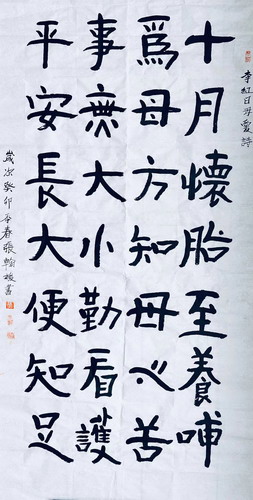 十月懷胎至養哺
為母方知母心苦
事無大小勤看護
平安長大便知足
李紅日母愛詩
歲次癸卯年春張翰枝書